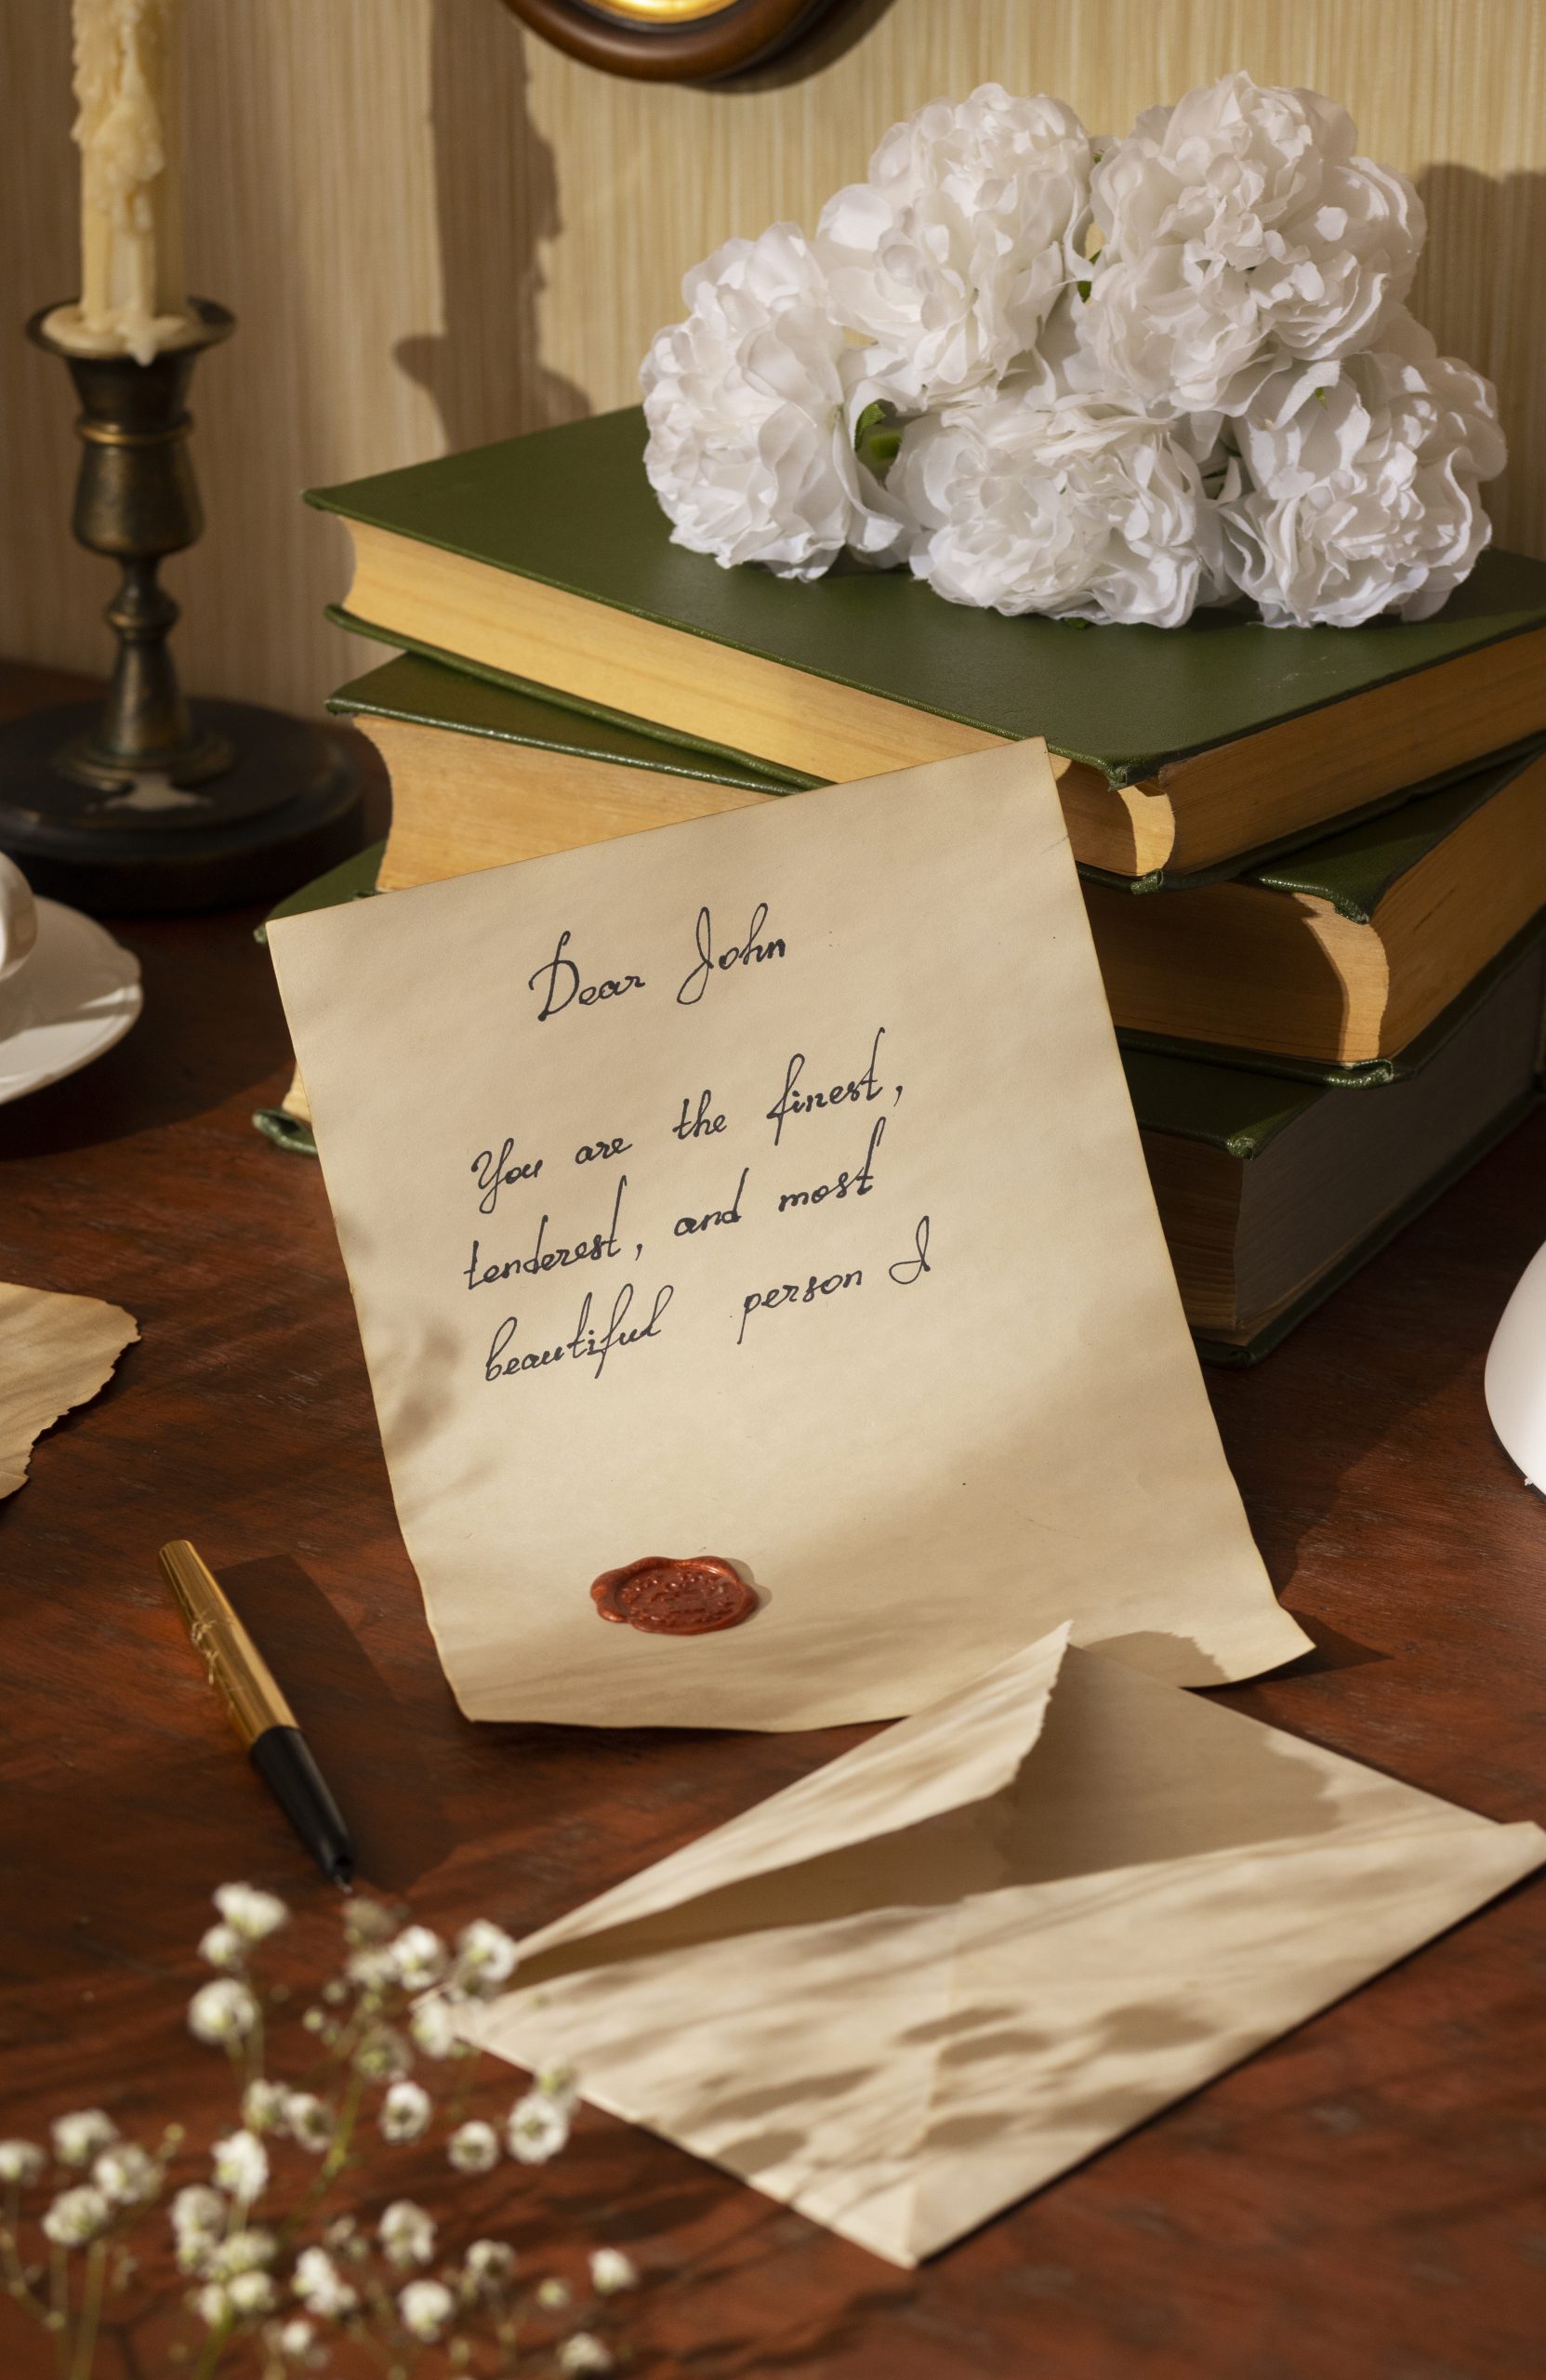 Dear John
You are the finest,
tenderest, and most
beautiful person I